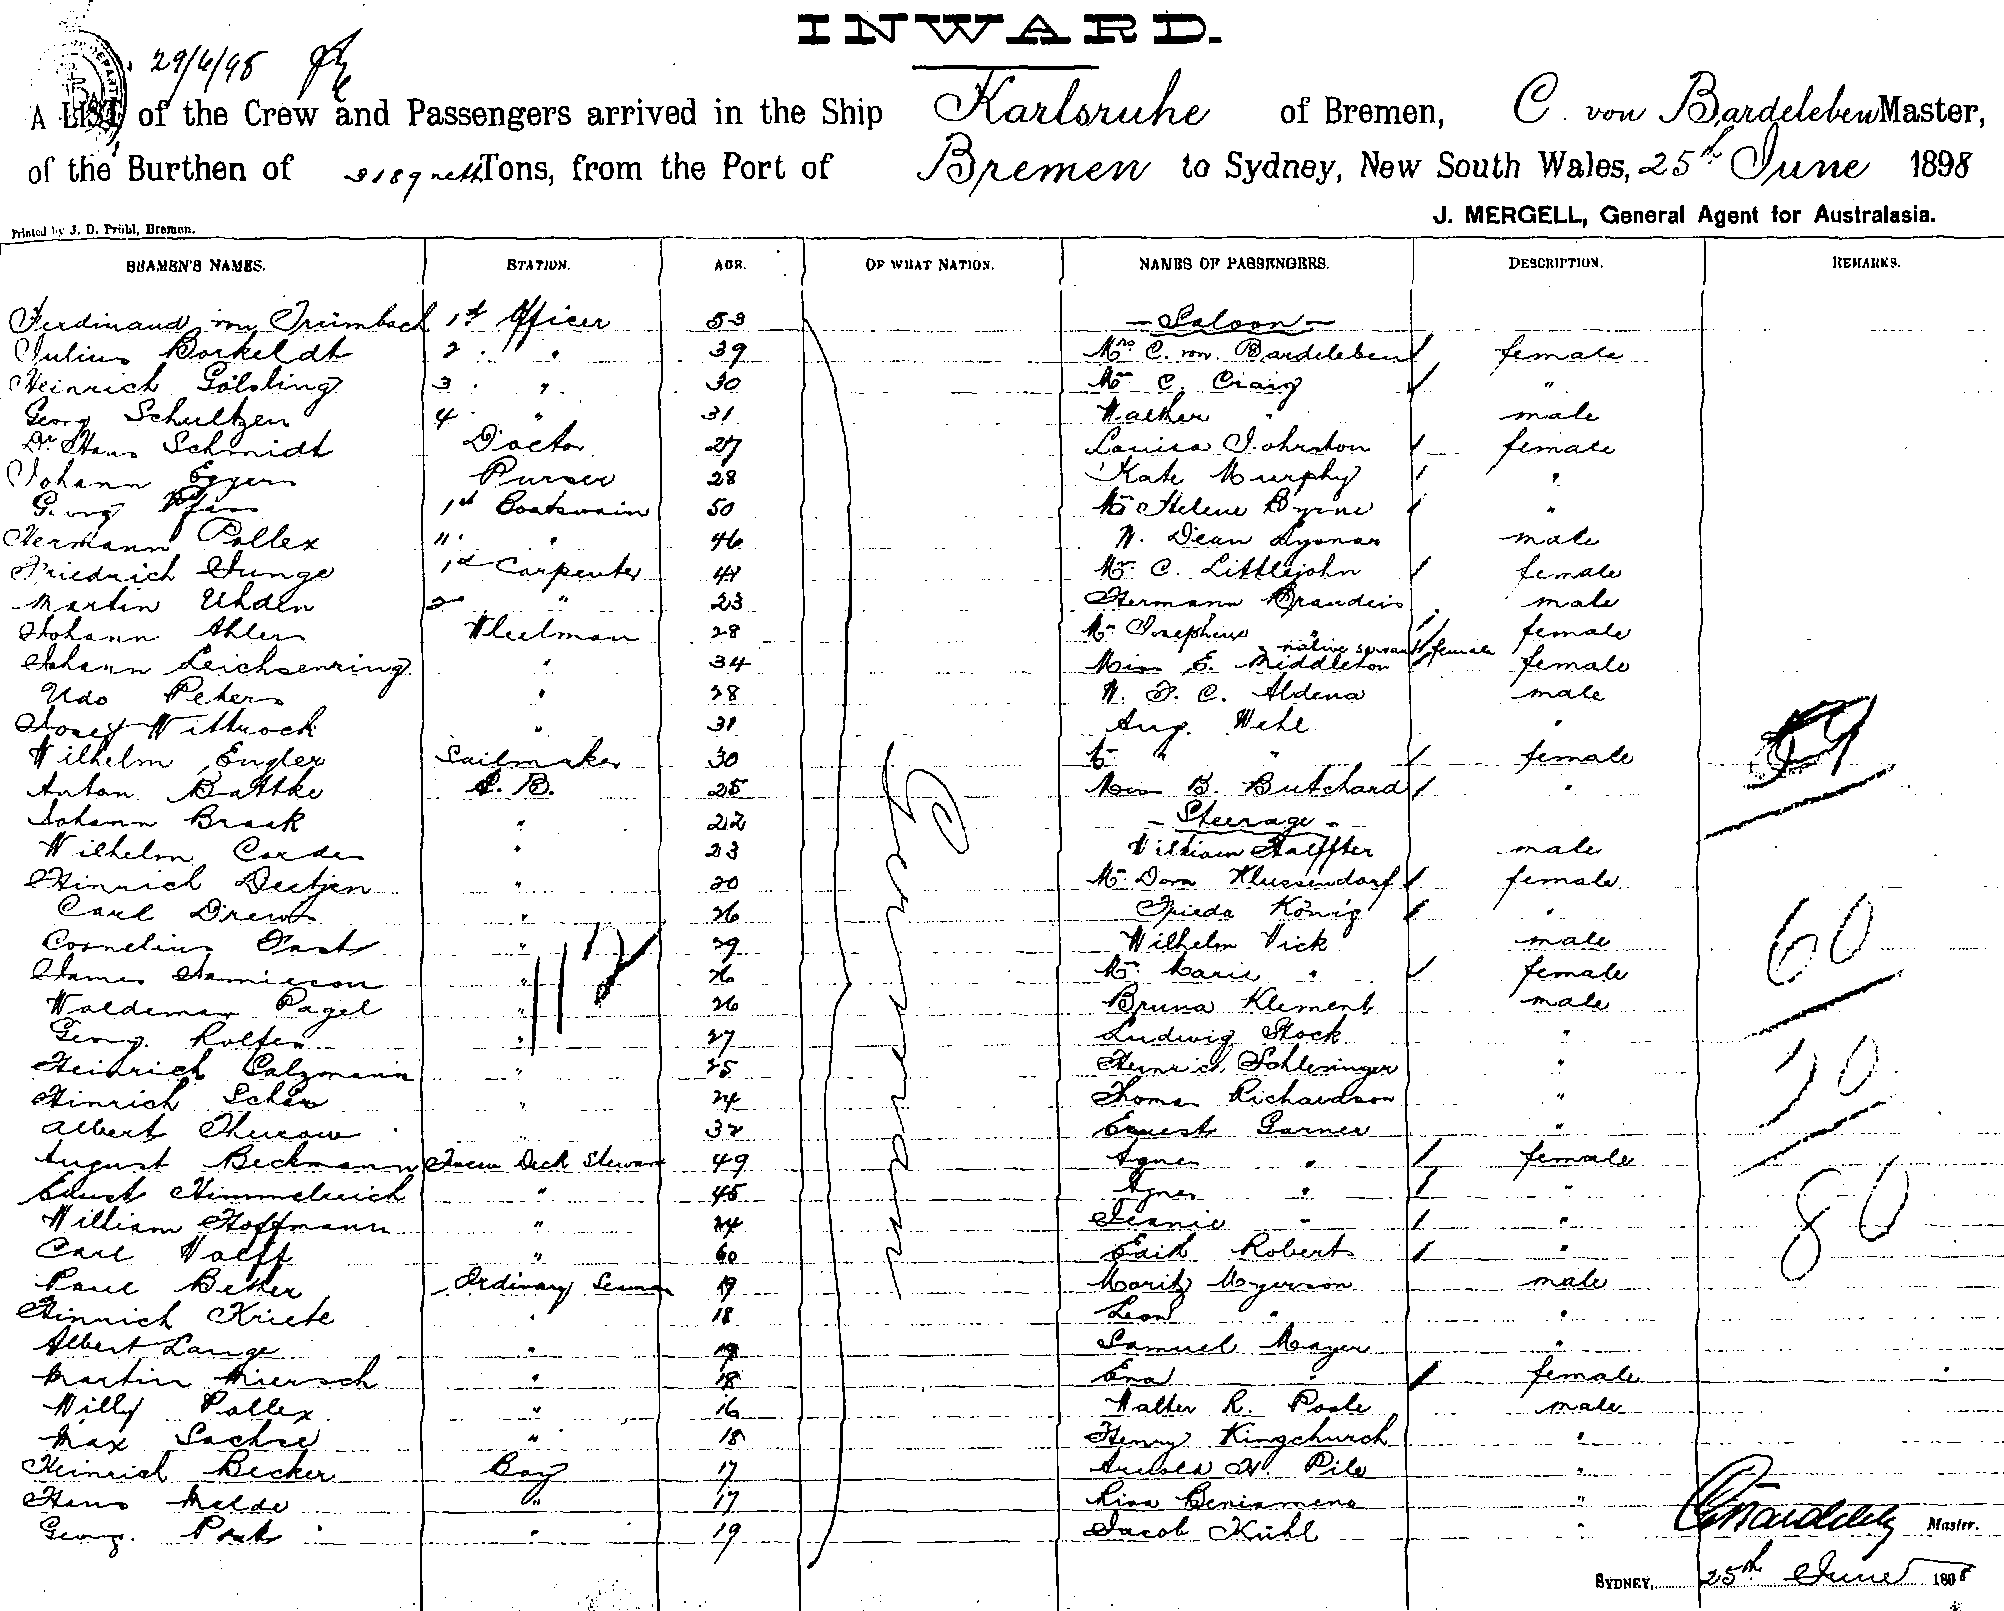 INWARD.
29/6/98
A LIST of the Crew and Passengers arrived in the Ship Karlsruhe of Bremen, C. von Bardeleben Master,
of the Burthen of 3189 nett Tons, from the Port of Bremen to Sydney, New South Wales, 25th June 1898
J. MERGELL, General Agent for Australasia.
Printed by J. D. Prühl, Bremen.
SEAMEN'S NAMES. STATION. AGE. OF WHAT NATION. NAMES OF PASSENGERS. DESCRIPTION. REMARKS.
Ferdinand von Trümbach 1st Officer 53 - Saloon -
Julius Borkeldt 2. " 39 Mrs C. von Bardeleben female
Heinrich Gölsling 3. " 30 Mrs C. Craig "
Georg Schultzen 4. " 31 Walther " male
Dr Hans Schmidt Doctor 27 Louisa Johnston female
Johann Eggers Purser 28 Kate Murphy "
Georg 1st Boatswain 50 Mrs Helene Byrne "
Hermann Pollex ". " 46 N. Dean male
Friedrich Junge 1st Carpenter 41 Mrs C. Littlejohn female
Martin Uhden 2d " 23 Hermann Brandeis male
Johann Ahlers Wheelman 28 Mrs Josephine " female
native servant female
Johann Leichsenring " 34 Miss E. Middleton female
Udo Peters " 28 N. F. C. male
Josef Wittrock " 31 Aug. Wehl "
Wilhelm Engler Sailmaker 30 Mrs " " female
Anton Battke A. B. 25 Miss B. Butchard "
Johann Braak " 22 - Steerage -
Wilhelm Cordes " 23 William Halffter male
Hinrich Deetjen " 20 Mrs Dora Klussendorf female
Carl Drews " 26 Frieda König "
Cornelius Fast " 29 Wilhelm Vick male
James Jamieson " 26 Mrs Marie " female
Waldemar Pagel " 26 Bruno Klement male
Georg Rolfes " 27 Ludwig Stock "
Heinrich Salzmann " 25 Heinrich Schlesinger "
Hinrich " 24 Thomas Richardson "
Albert Thurow " 32 Ernest Garner "
August Beckmann Tween Deck Steward 49 Agnes " female
Ernst Himmelreich " 45 Agnes " "
William Hoffmann " 24 Jeanie " "
Carl Wolff " 60 Edith Roberts "
Paul Beker Ordinary Seaman 19 Moritz Meyerson male
Hinrich Kriete " 18 Leon " "
Albert Lange " 19 Samuel Mayer "
Martin Miersch " 18 Ena " female
Willy Pollex " 16 Walter R. Poole male
Max Sachse " 18 Henry Kingchurch "
Heinrich Becker Boy 17 Arnold H. Pile "
Hans Melde " 17 "
Georg. " 19 Jacob Kühl "
German
112
60
70
80
Master.
SYDNEY, 25th June 1898